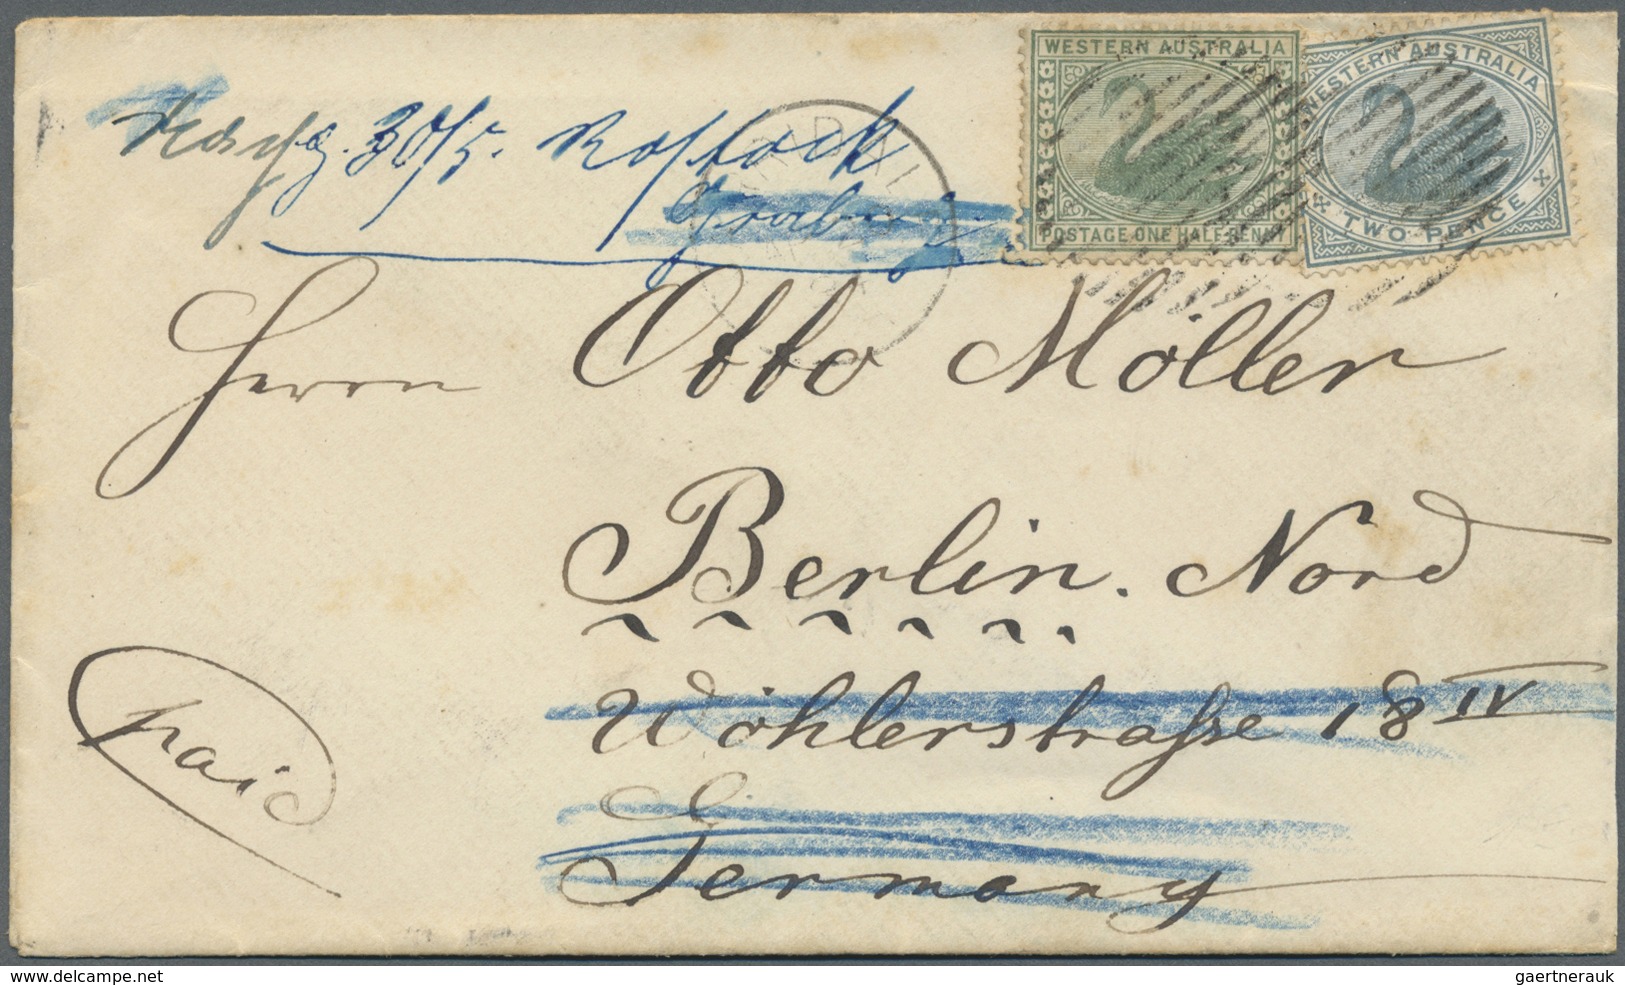 WESTERN AUSTRALIA
POSTAGE ONE HALF-PENNY
WESTERN AUSTRALIA
TWO PENCE
30/5. Rostock
Herrn Otto Möller
Berlin. Nord
Wöhlerstraße 18 IV
Germany
paid
www.delcampe.net
gaertnerauk